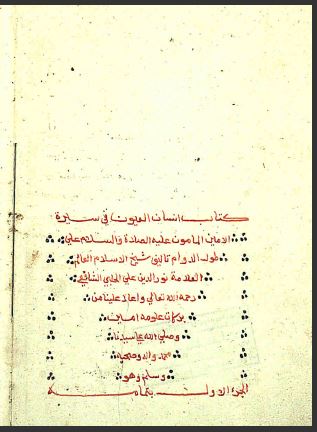 كتاب انسان العيون في سيرة
الامين المامون عليه الصلاة والسلام علي
طول الدوام تاليف شيخ الاسلام العالم
العلامة نور الدين علي الحلبي الشافعي
رحمه الله تعالي واعاد علينا من
بركات علومه امين
وصلي الله علي سيدنا
محمد واله وصحبه
وسلم وهو
الجزء الاول بتمامه